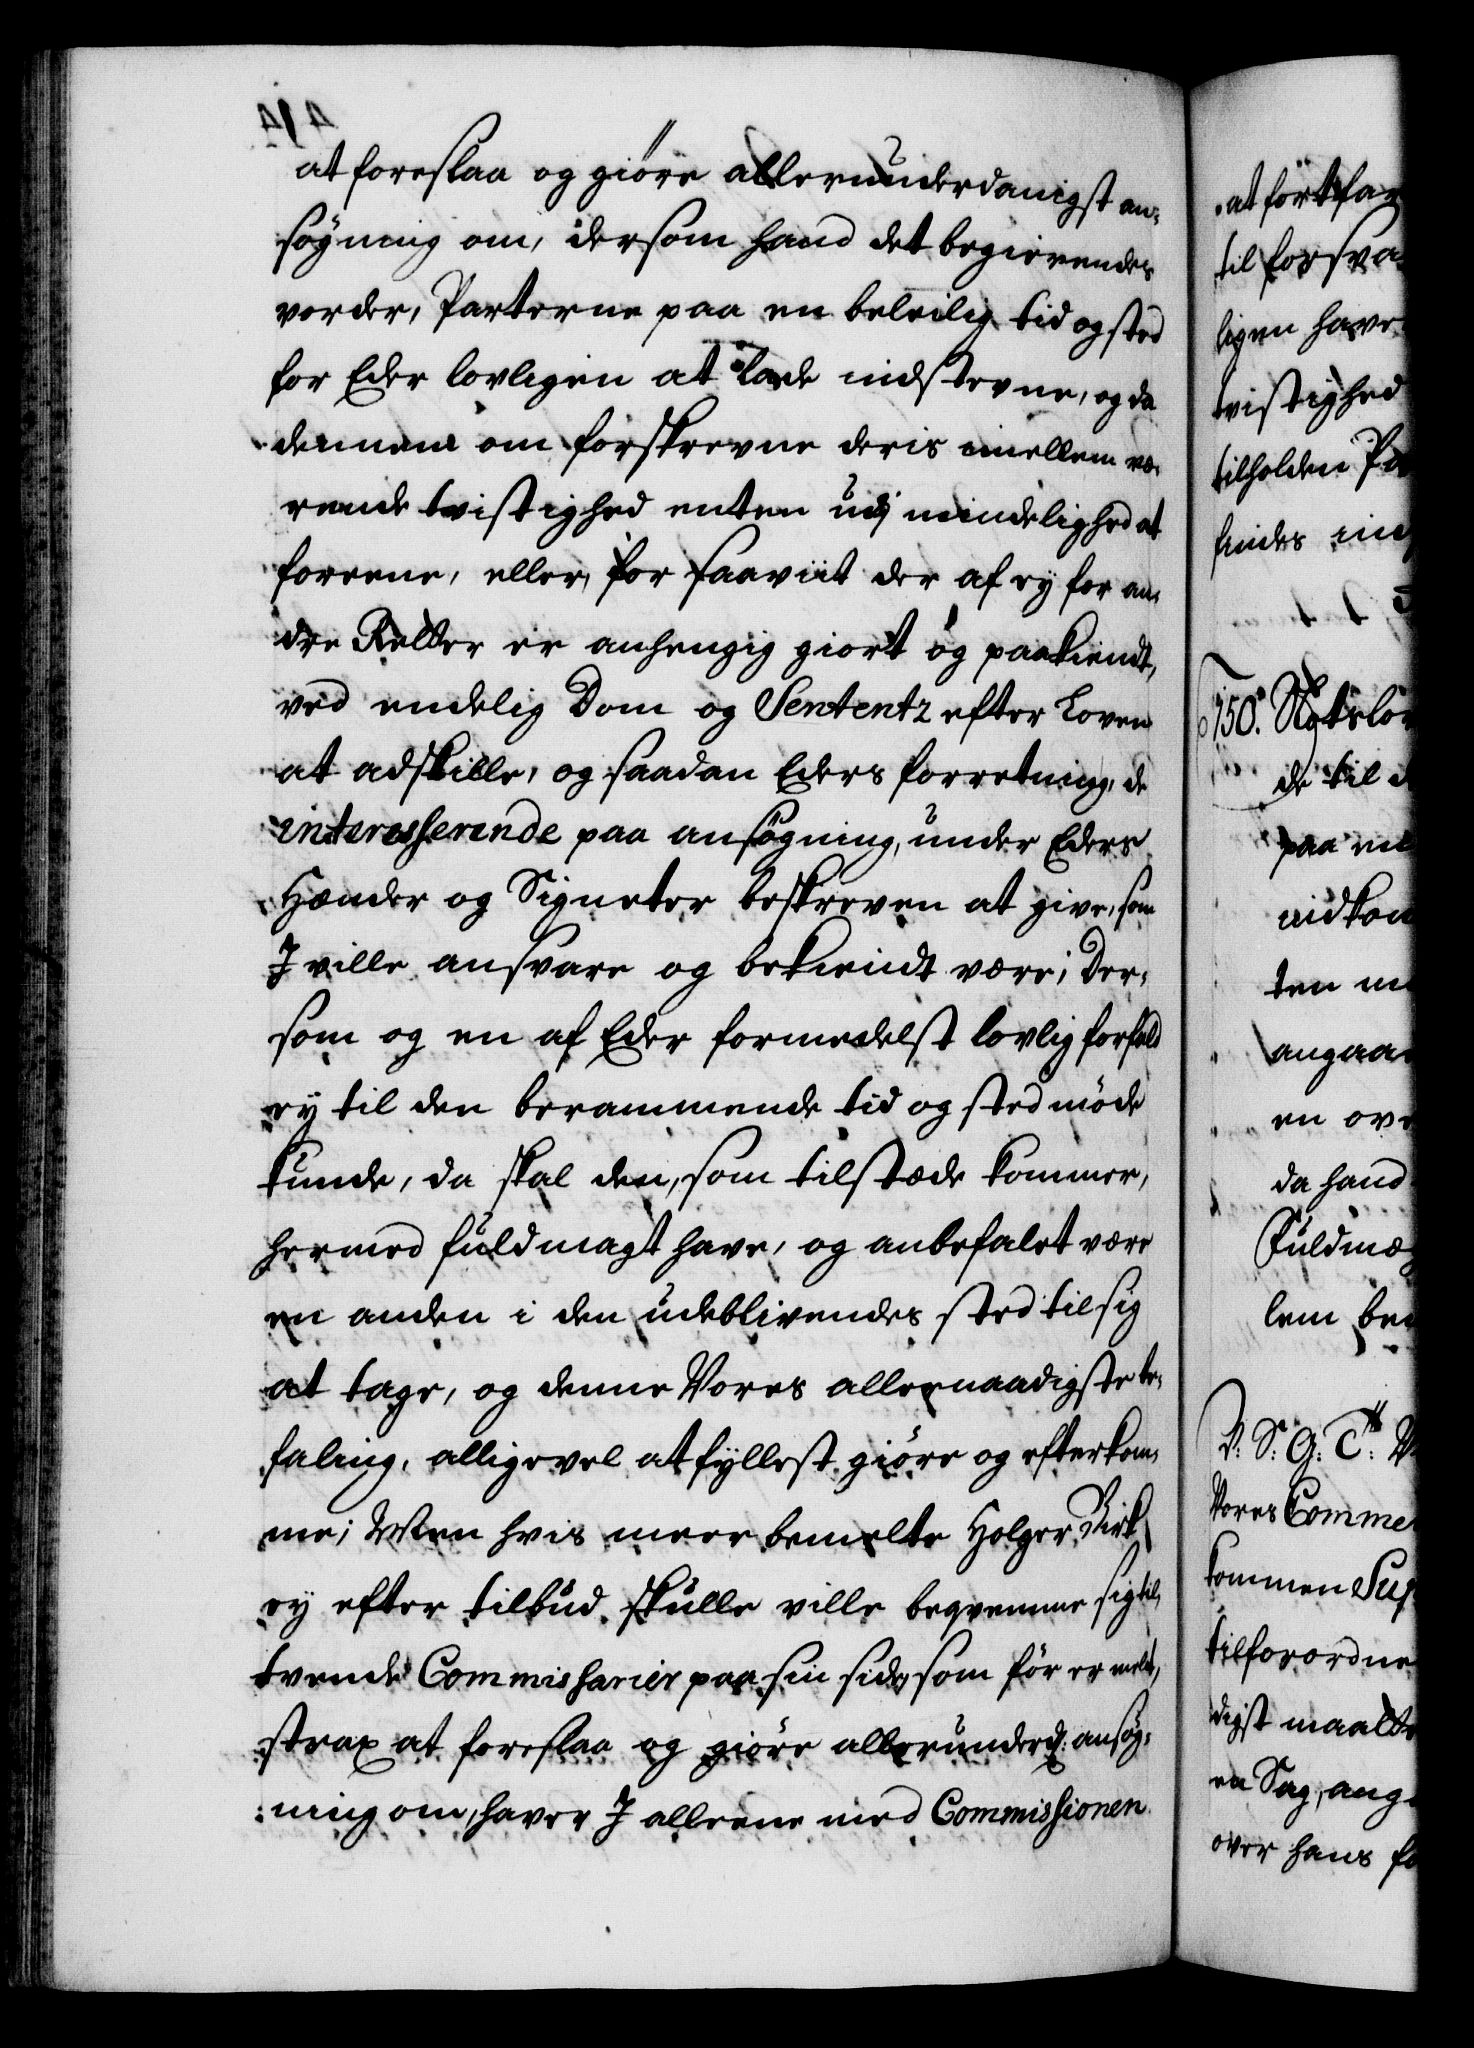 at foreslaa og giöre allerunderdanigst an-
søgning om, dersom hand det begierendes
vorder, Parterne paa en beleilig tid og sted
for Eder lovligen at lade indstevne, og da
dennem om forskrevne deris imellem væ-
rende tvistighed enten udj mindelighed at
foreene, eller, for saaviit der af ey for an-
dre Retter er anhengig giort og paakiendt,
ved endelig Dom og Sententz efter Loven
at adskille, og saadan Eders forretning, de
interesserende paa ansøgning, under Eders
Hænder og Signeter beskreven at give, som
I ville ansvare og bekiendt være; Der-
som og en af Eder formedelst lovlig forfald
ey til den berammende tid og sted møde
kunde, da skal den, som tilstæde kommer,
hermed fuldmagt have, og anbefalet være
en anden i den udeblivendes sted til sig
at tage, og denne Vores allernaadigste be-
faling, alligevel at fyllest giöre og efterkom-
me; Men hvis meer bemelte Holger Birk
ey efter tilbud skulle ville beqvemme sig til,
tvende Commissarier paa sin side, som för er melt,
strax at foreslaa og giöre allerunderd: ansøg-
ning om, haver I alleene med Commissionen
at fortfar
til forsva
ligen have
tvistighed
tilholden Pa
findes
150.
de til
paa
indkom
ten
angaa
en ov
da hand
Fuldmæ
lem be
V. S. G. T.
Vores Comme
kommen Sup
tilforordne
digst maatte
en Sag, ang
over hans fo